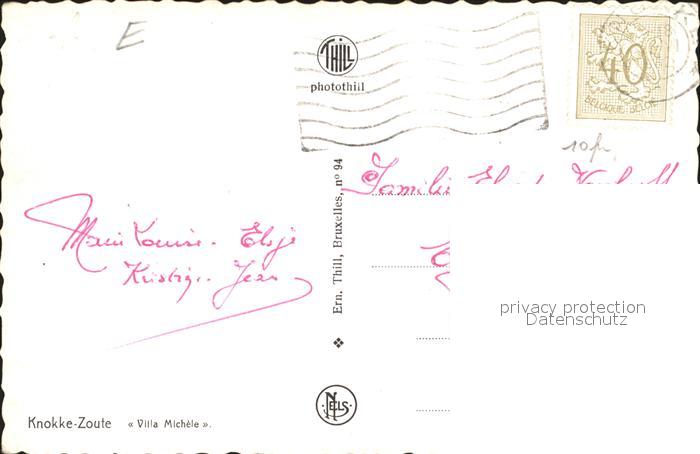 E
THILL
photothill
40
BELGIQUE-BELGIË
10fr
Ern. Thill, Bruxelles, nº 94
Marie Louise. Elsje
Kristig.. Jean
Familie
privacy protection
Datenschutz
NELS
Knokke-Zoute « Villa Michèle ».